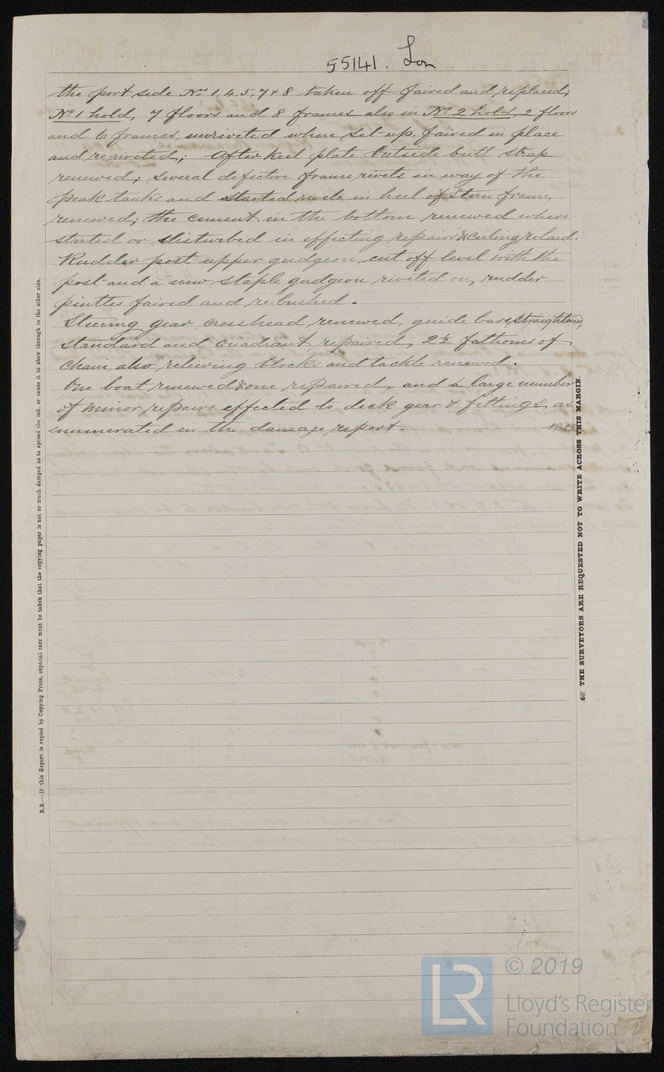 55141. Lon
the port side Nos 1, 4, 5, 7 & 8 taken off faired and replaced,
No 1 hold, 7 floors and 8 frames also in No 2 hold, 2 floors
and 6 frames, unriveted where set up, faired in place
and re-riveted; After keel plate outside butt strap
renewed; several defective frame rivets in way of the
peak tanks and started rivets in heel of Stern frame,
renewed; the cement in the bottom renewed where
started or disturbed in effecting repairs & ceiling relaid.
Rudder post upper gudgeon, cut off level with the
post and a new staple gudgeon riveted on, rudder
pintles faired and re-bushed.
Steering gear crosshead renewed, guide bars straightened,
standard and quadrant repaired, 2½ fathoms of
chain also, relieving blocks and tackle renewed.
One boat renewed & one repaired, and a large number
of minor repairs effected to deck gear & fittings, as
enumerated in the damage report.
N.B.—If this Report is copied by Copying Press, especial care must be taken that the copying paper is not so much damped as to spread the ink, or cause it to show through to the other side.
THE SURVEYORS ARE REQUESTED NOT TO WRITE ACROSS THIS MARGIN.
LR
© 2019
Lloyd's Register
Foundation